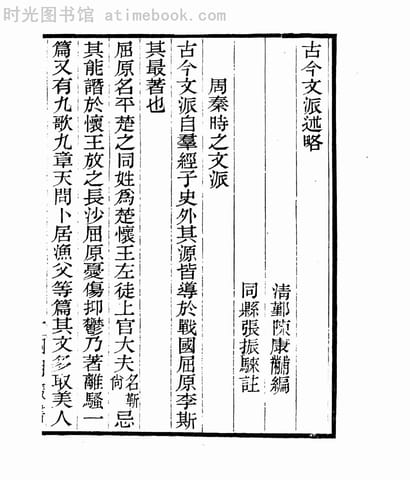 时光图书馆 - atimebook.com
古今文派述略
清鄞陳康黼編
同縣張振騄註
周秦時之文派
古今文派自羣經子史外其源皆導於戰國屈原李斯
其最著也
屈原名平楚之同姓爲楚懷王左徒上官大夫名靳尚忌
其能譖於懷王放之長沙屈原憂傷抑鬱乃著離騷一
篇又有九歌九章天問卜居漁父等篇其文多取美人